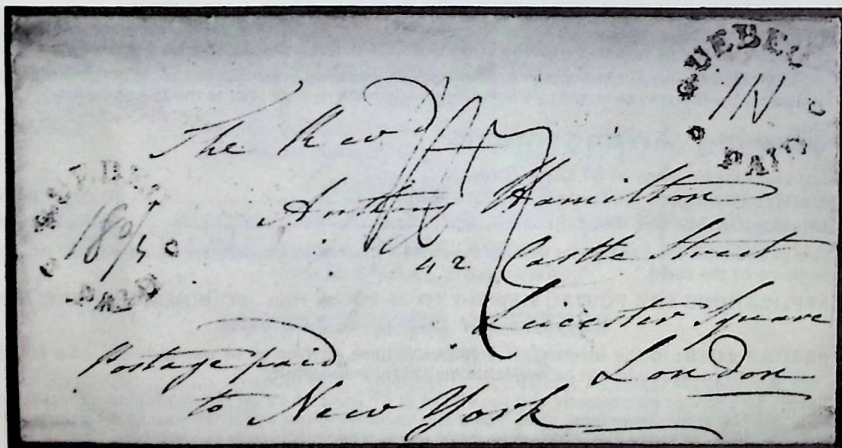 QUEBEC
IN
PAID
The Revd
Anthony Hamilton
42 Castle Street
Leicester Square
London
QUEBEC
PAID
Postage paid
to New York